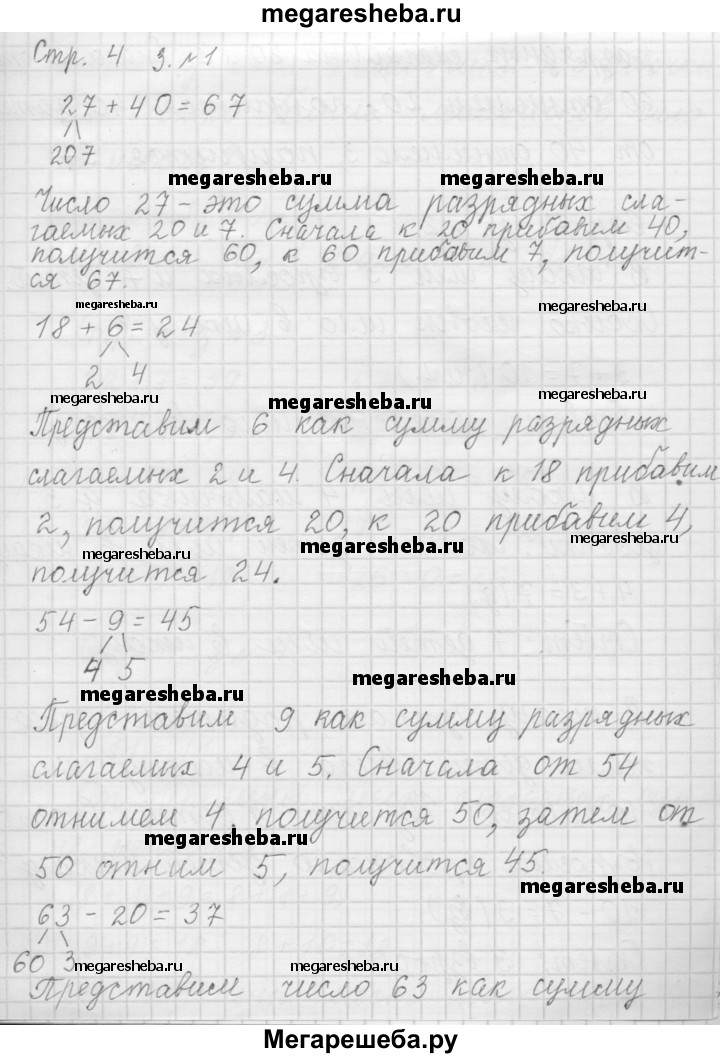 megaresheba.ru
Стр. 4 З. №1
27 + 40 = 67
20 7
megaresheba.ru
megaresheba.ru
Число 27 - это сумма разрядных сла-
гаемых 20 и 7. Сначала к 20 прибавим 40,
получится 60, к 60 прибавим 7, получит-
ся 67.
megaresheba.ru
megaresheba.ru
18 + 6 = 24
2 4
megaresheba.ru
megaresheba.ru
megaresheba.ru
Представим 6 как сумму разрядных
слагаемых 2 и 4. Сначала к 18 прибавим
2, получится 20, к 20 прибавим 4,
megaresheba.ru
megaresheba.ru
megaresheba.ru
получится 24.
54 - 9 = 45
4 5
megaresheba.ru
megaresheba.ru
Представим 9 как сумму разрядных
слагаемих 4 и 5. Сначала от 54
отнимем 4, получится 50, затем от
megaresheba.ru
50 отним 5, получится 45.
megaresheba.ru
63 - 20 = 37
60 3
megaresheba.ru
megaresheba.ru
Представим число 63 как сумму
Мегарешеба.ру